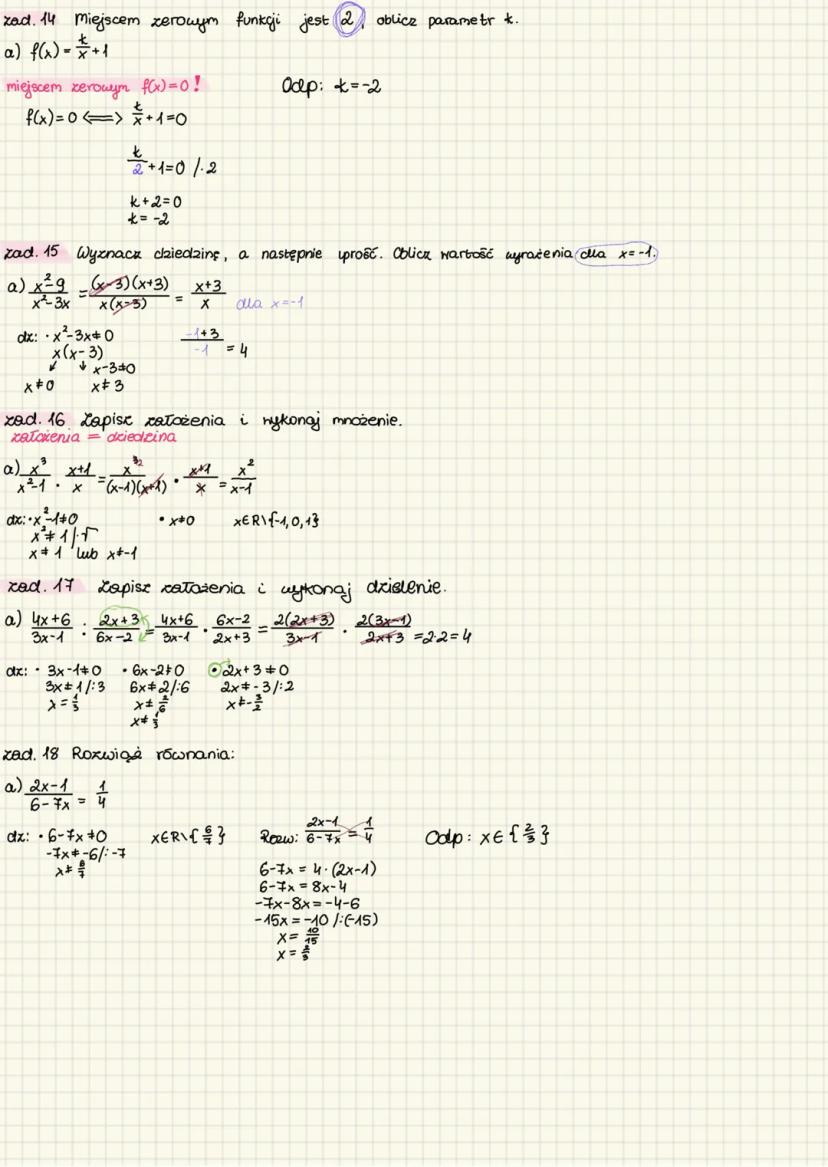 zad. 14 Miejscem zerowym funkcji jest 2, oblicz parametr k.
a) f(x) = k/x + 1
miejscem zerowym f(x)=0! Odp: k=-2
f(x)=0 <=> k/x + 1 = 0
k/2 + 1 = 0 /·2
k+2=0
k=-2
zad. 15 Wyznacz dziedzinę, a następnie uprość. Oblicz wartość wyrażenia dla x=-1.
a) x²-9/x²-3x = (x-3)(x+3)/x(x-3) = x+3/x dla x=-1
dz: · x²-3x≠0 -1+3/-1 = 4
x(x-3)
↙ ↓ x-3≠0
x≠0 x≠3
zad. 16 Zapisz założenia i wykonaj mnożenie.
założenia = dziedzina
a) x³/x²-1 · x+1/x = x³²/(x-1)(x+1) · x+1/x = x²/x-1
dz: · x²-1≠0 · x≠0 x∈R\{-1,0,1}
x²≠1 /√
x≠1 lub x≠-1
zad. 17 Zapisz założenia i wykonaj dzielenie.
a) 4x+6/3x-1 : 2x+3/6x-2 = 4x+6/3x-1 · 6x-2/2x+3 = 2(2x+3)/3x-1 · 2(3x-1)/2x+3 = 2·2 = 4
dz: · 3x-1≠0 · 6x-2≠0 · 2x+3≠0
3x≠1 /:3 6x≠2 /:6 2x≠-3 /:2
x=1/3 x≠2/6 x≠-3/2
x≠1/3
zad. 18 Rozwiąż równania:
a) 2x-1/6-7x = 1/4
dz: · 6-7x≠0 x∈R\{6/7} Rozw: 2x-1/6-7x = 1/4 Odp: x∈{2/3}
-7x≠-6 /:-7
x≠6/7
6-7x = 4·(2x-1)
6-7x = 8x-4
-7x-8x=-4-6
-15x=-10 /:(-15)
x=10/15
x=2/3